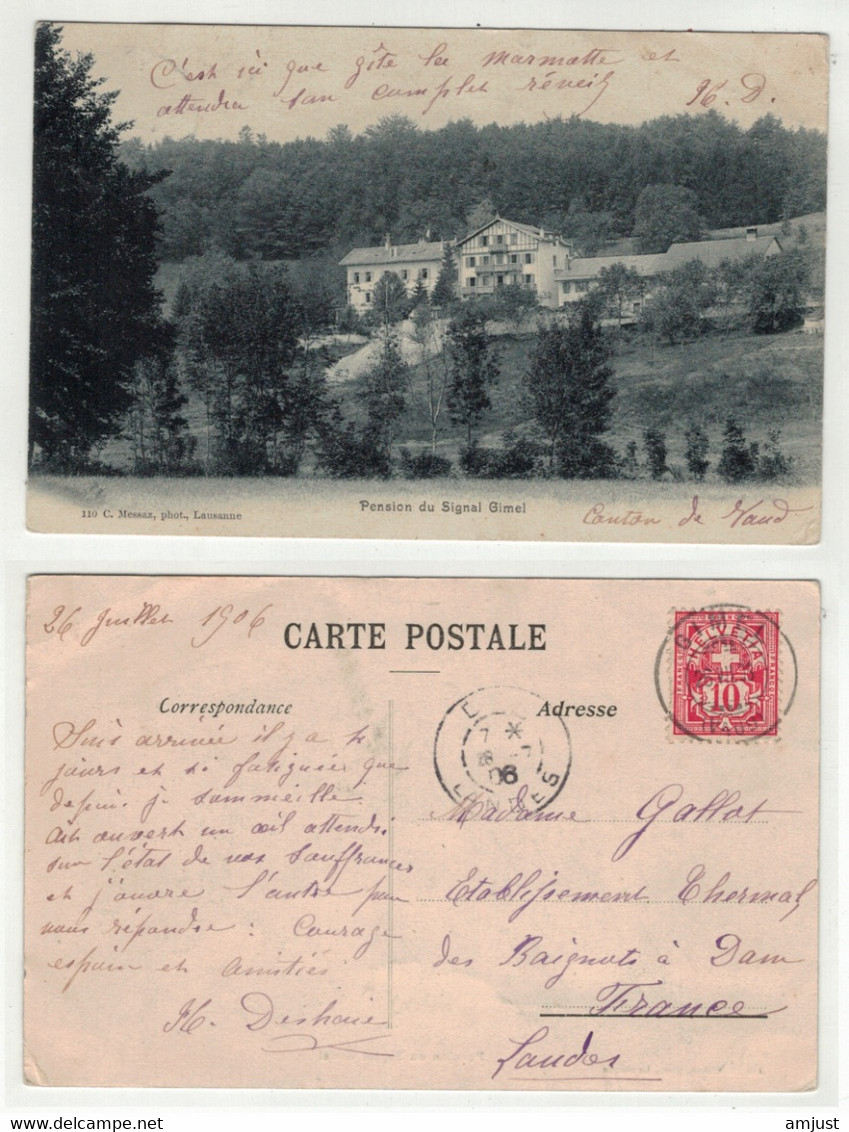 C'est ici que gîte la marmotte et
attendra son complet réveil
H. D.
110 C. Messaz, phot., Lausanne
Pension du Signal Gimel
Canton de Vaud
26 Juillet 1906
CARTE POSTALE
Correspondance
Adresse
HELVETIA
10
7
06
Suis arrivée il y a
jours et si fatiguée que
depuis je sommeille.
Ait ouvert un œil attendri
sur l'état de vos souffrances
et j'ouvre l'autre pour
vous répondre : Courage
espoir et amitiés
H. Deshaie
Madame Gallot
Etablissement Thermal
des Baignots à Dax
France
Landes
amjust